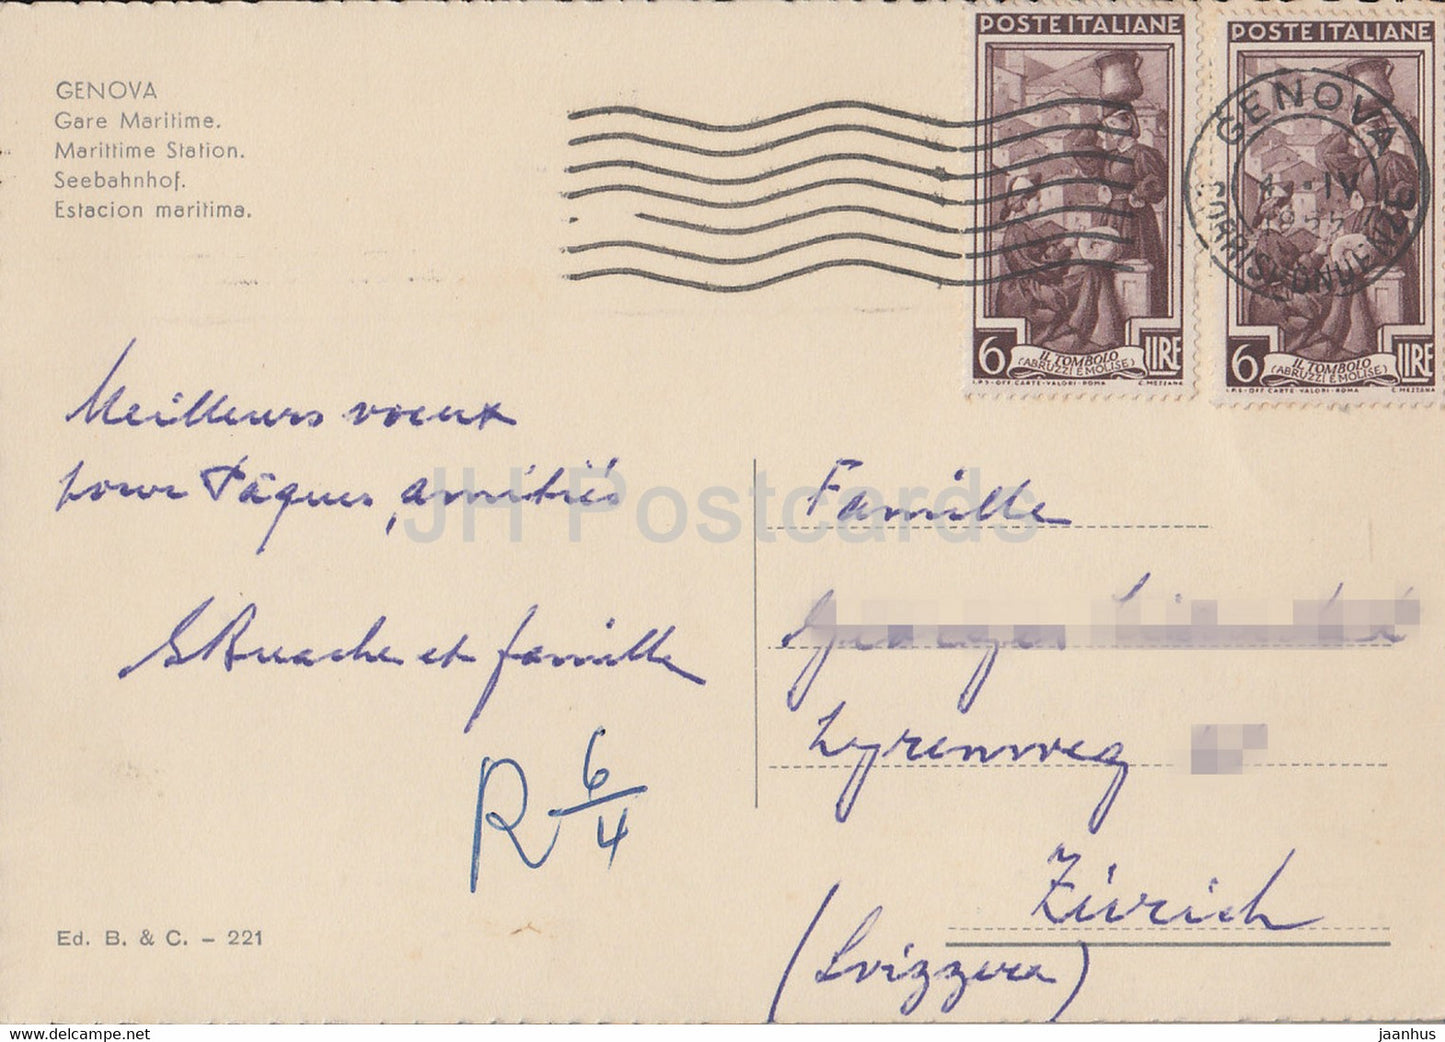 GENOVA
Gare Maritime.
Marittime Station.
Seebahnhof.
Estacion maritima.
POSTE ITALIANE
6 LIRE
IL TOMBOLO
(ABRUZZI E MOLISE)
I.P.S-OFF. CARTE-VALORI-ROMA C. MEZZANA
POSTE ITALIANE
6 LIRE
IL TOMBOLO
(ABRUZZI E MOLISE)
I.P.S-OFF. CARTE-VALORI-ROMA C. MEZZANA
GENOVA
IV
1955
CORRISPONDENZE
Meilleurs voeux
pour Pâques, amitiés
et famille
R 6/4
Famille
Lyrenweg
Zürich
(Svizzera)
Ed. B. & C. - 221
JH Postcards
jaanhus